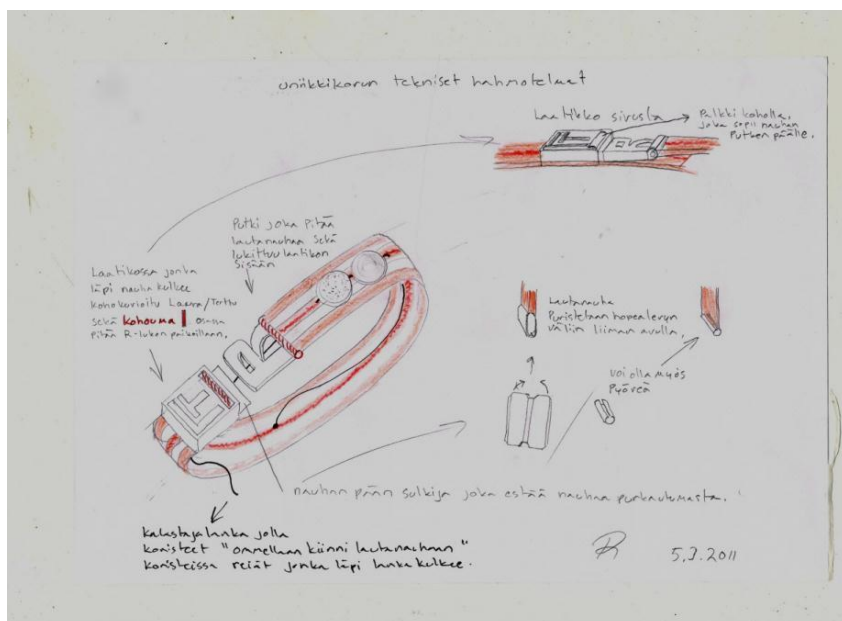 uniikkikorun tekniset hahmotelmat
Laatikko sivusta
Palkki koholla,
joka sopii nauhan
Putken päälle.
Putki joka Pitää
lautanauhaa sekä
lukittuu laatikon
Sisään
Laatikossa jonka
läpi nauha kulkee
kohokuvioitu Laura/Terttu
sekä kohouma osassa
Pitää R-lukon paikoillaan.
Lautanauha
Puristetaan hopealevyn
väliin liiman avulla.
voi olla myös
Pyöreä
nauhan pään sulkija joka estää nauhaa purkautumasta.
kalastajalanka jolla
koristeet "ommellaan kiinni lautanauhaan"
koristeissa reiät jonka läpi lanka kulkee.
R 5.3.2011